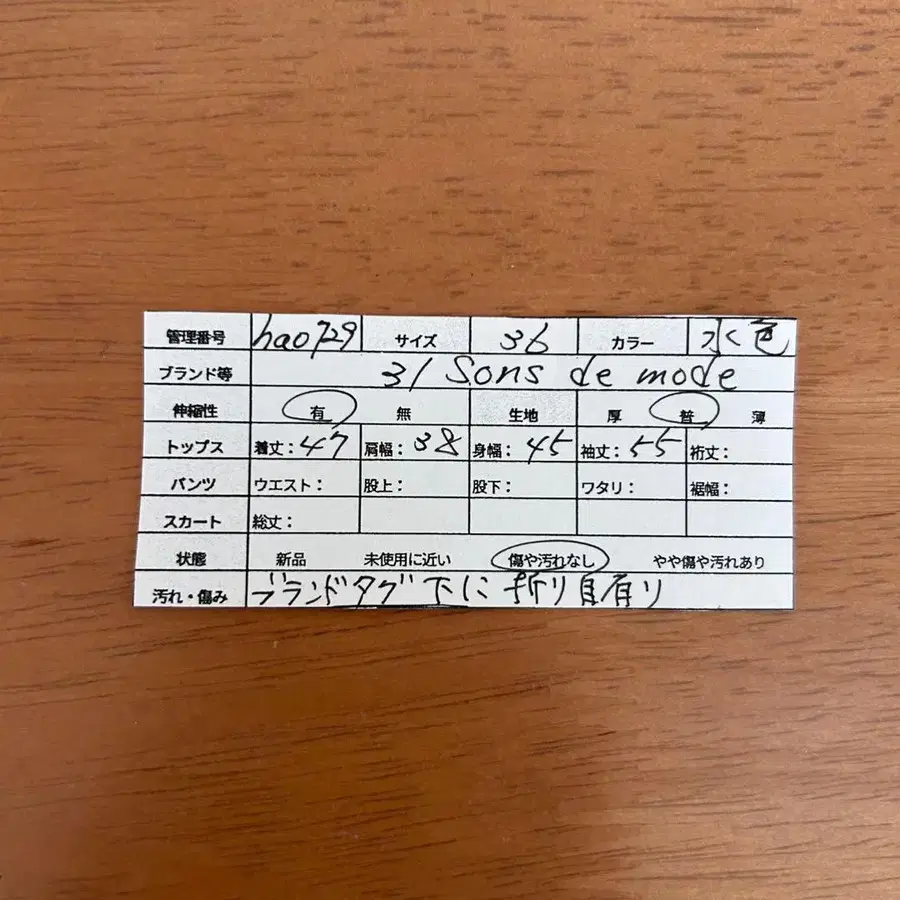 管理番号 hao729 サイズ 36 カラー 水色
ブランド等 31 Sons de mode
伸縮性 有 無 生地 厚 普 薄
トップス 着丈：47 肩幅：38 身幅：45 袖丈：55 裄丈：
パンツ ウエスト： 股上： 股下： ワタリ： 裾幅：
スカート 総丈：
状態 新品 未使用に近い 傷や汚れなし やや傷や汚れあり
汚れ・傷み ブランドタグ下に折り目有り